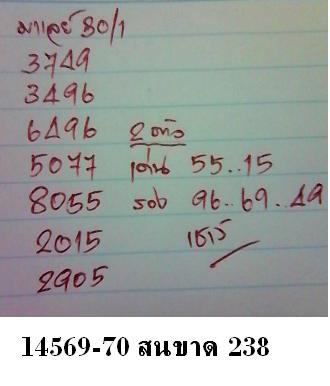 มาเลย์ 80/1
3749
3496
6496 2 ตัว
5077 เด่น 55..15
8055 รอง 96..69..49
2015
2905
14569-70 สนขาด 238